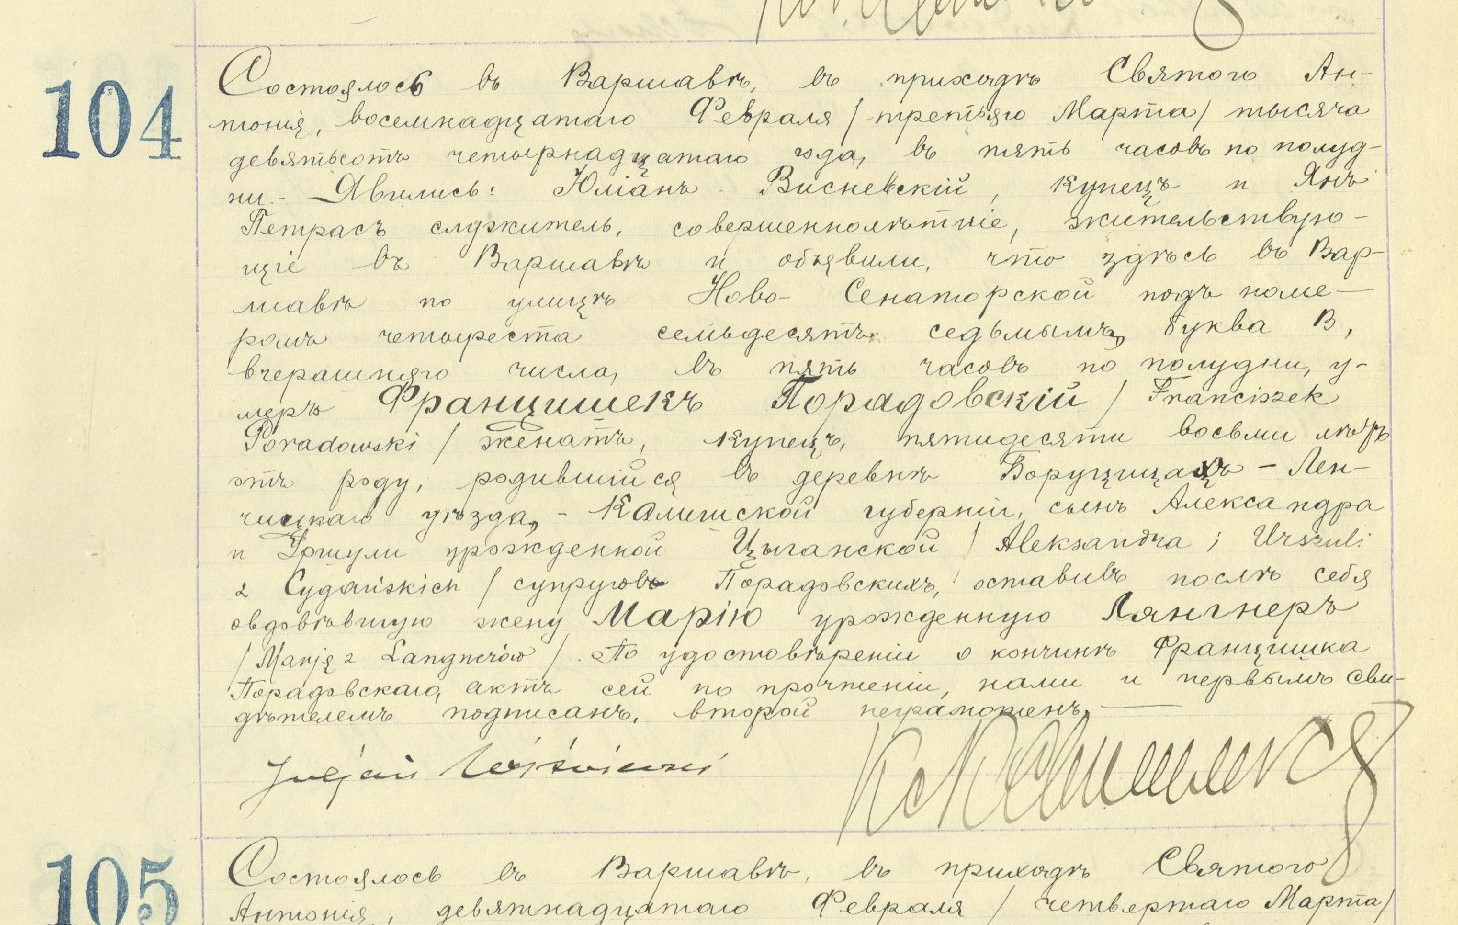 104
Состоялось въ Варшавѣ, въ приходѣ Святого Ан-
тонія, восемнадцатаго Февраля / третьяго Марта / тысяча
девятьсотъ четырнадцатаго года, въ пять часовъ по полуд-
ни. - Явились: Юліанъ Висневскій, купецъ и Янъ
Петрасъ служитель, совершеннолѣтніе, жительствую-
щіе въ Варшавѣ и объявили, что здѣсь въ Вар-
шавѣ по улицѣ Ново- Сенаторской подъ номе-
ромъ четыреста семьдесятъ седьмымъ, буква В,
вчерашняго числа, въ пять часовъ по полудни, у-
меръ Францишекъ Порадовскій / Franciszek
Poradowski / женатъ, купецъ, пятидесяти восьми лѣтъ
отъ роду, родившійся въ деревнѣ Боруцицахъ - Лен-
чицкаго уѣзда, - Калишской губерніи, сынъ Александра
и Уршули урожденной Цыганской / Aleksandra i Urszuli
z Cygańskich / супруговъ Порадовскихъ, оставивъ послѣ себя
овдовѣвшую жену Марію урожденную Лянгнеръ
/ Marję z Langnerów /. По удостовѣреніи о кончинѣ Францишка
Порадовскаго, актъ сей по прочтеніи, нами и первымъ сви-
дѣтелемъ подписанъ, второй неграмотенъ.
Juljan Wiśniewski
105
Состоялось въ Варшавѣ, въ приходѣ Святого
Антонія, девятнадцатаго Февраля / четвертаго Марта /